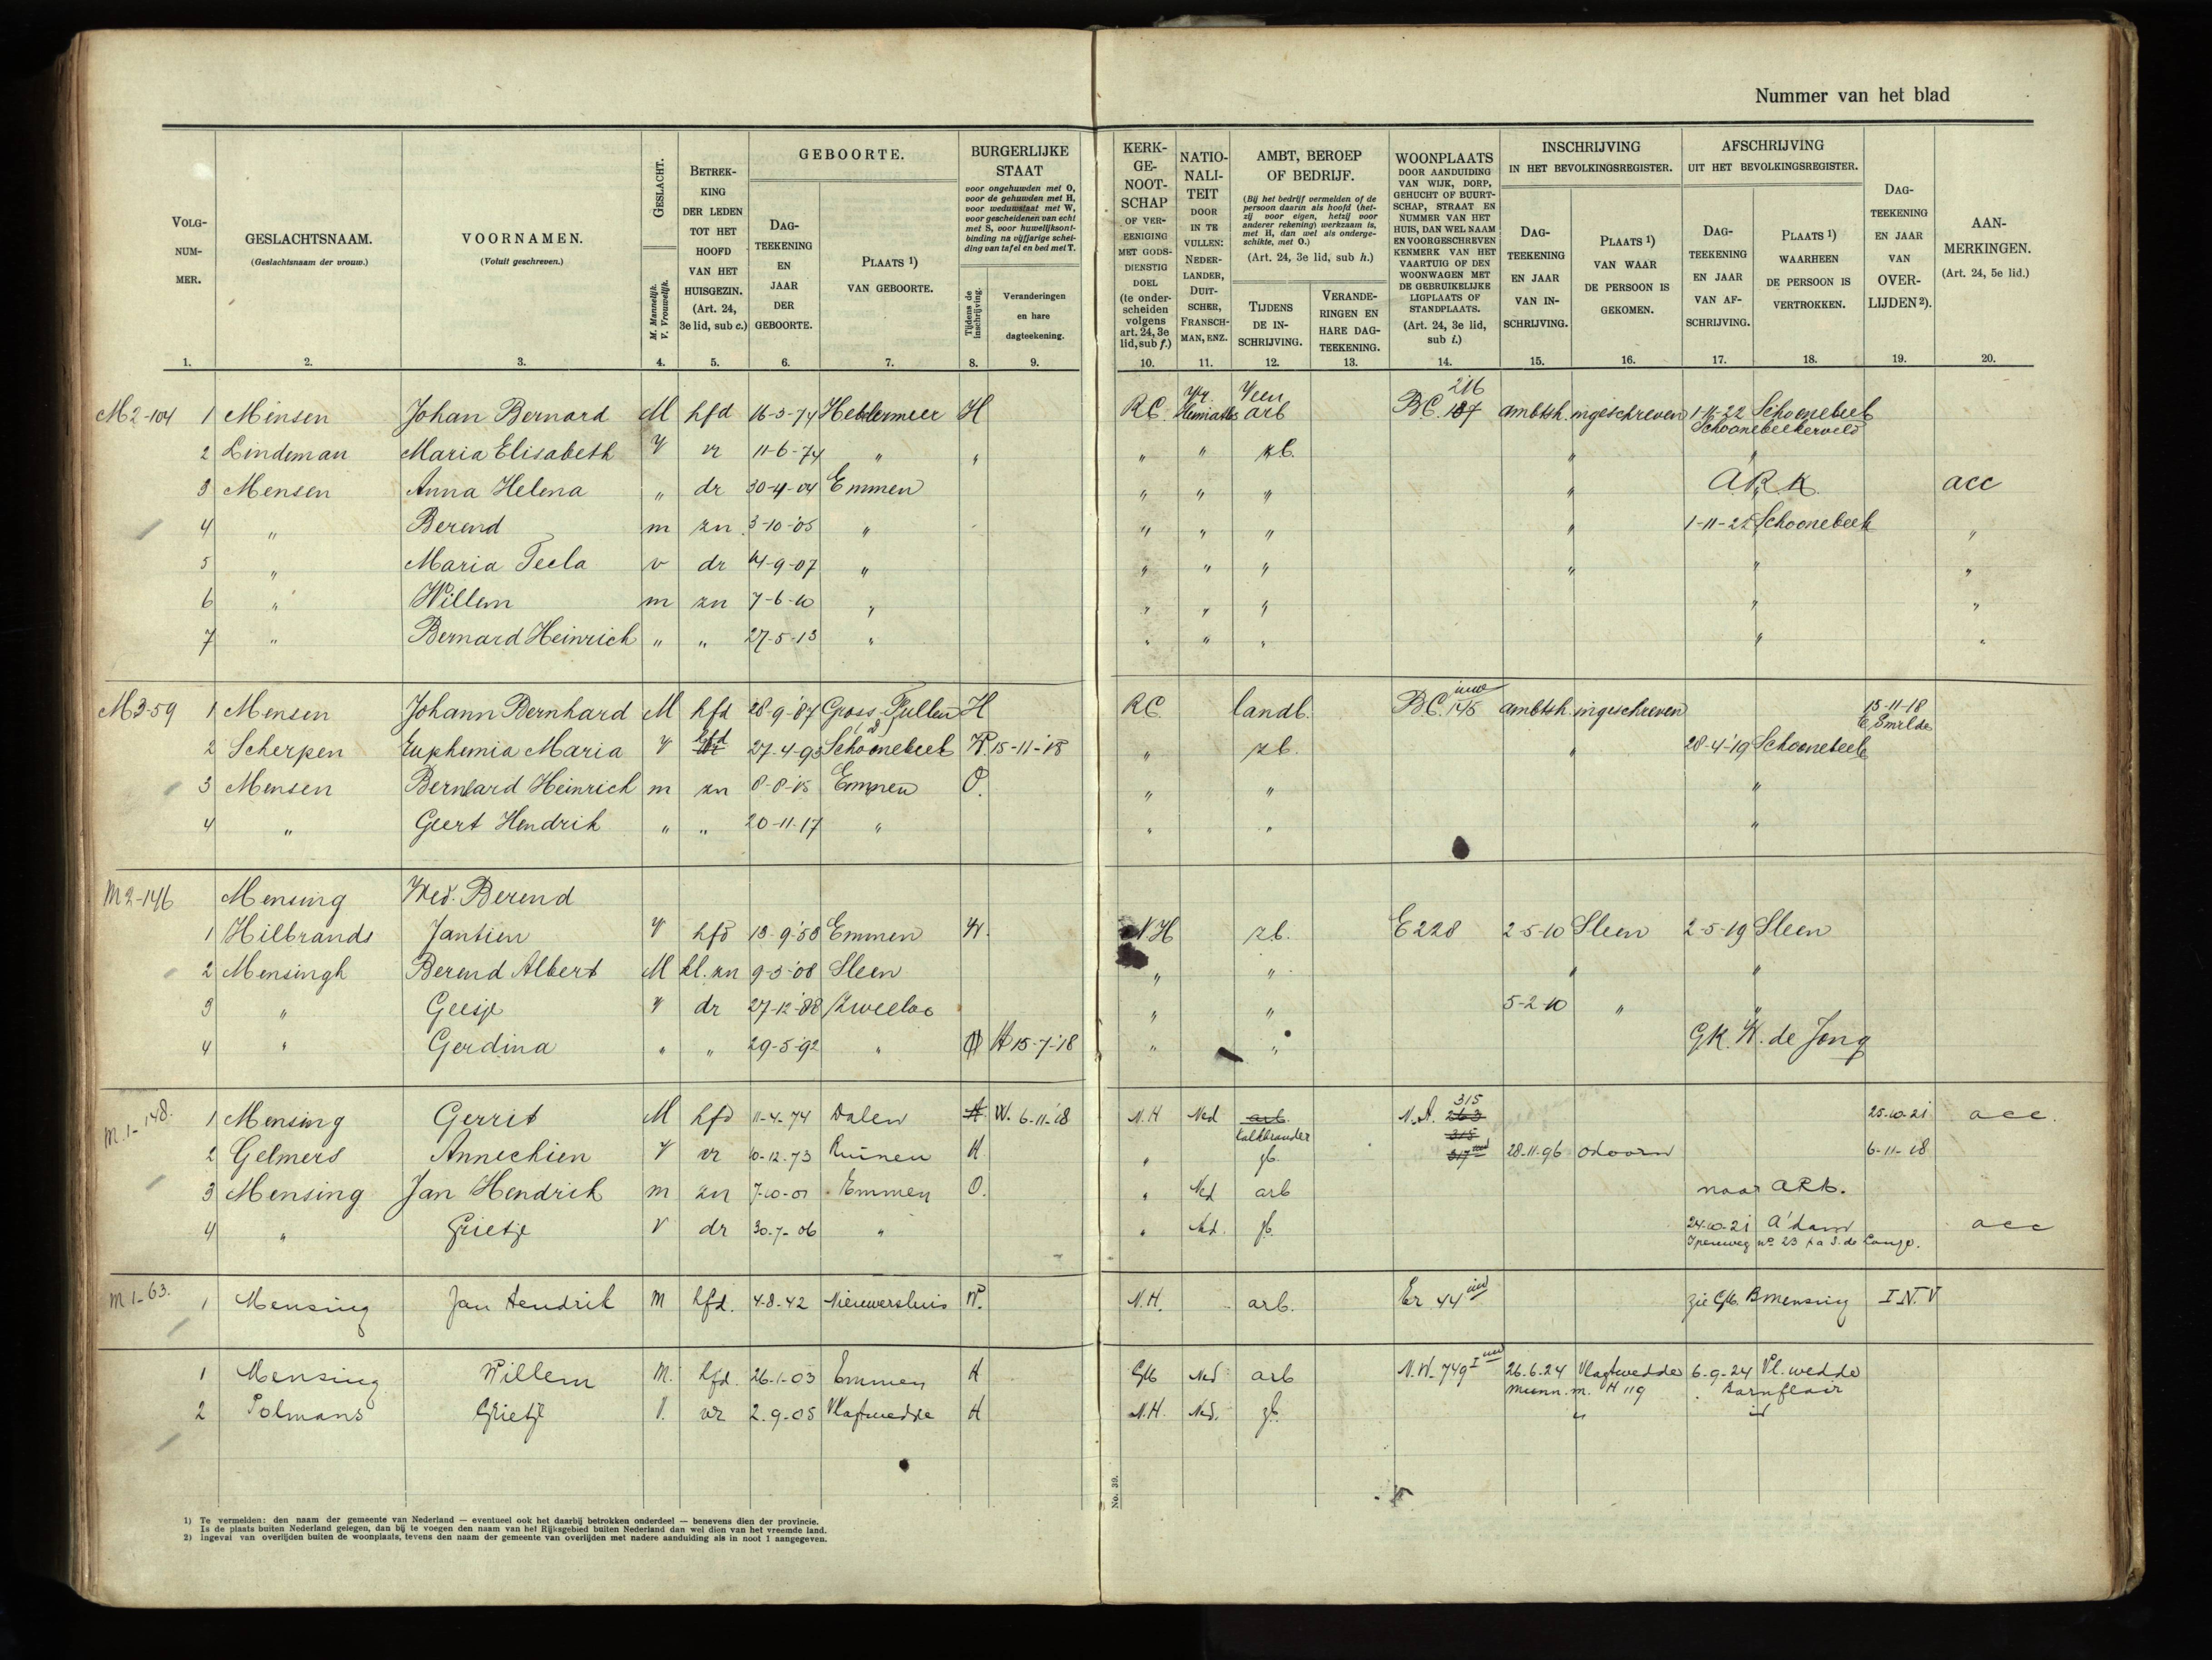 Nummer van het blad
VOLG-NUM-MER. 1.
GESLACHTSNAAM. (Geslachtsnaam der vrouw.) 2.
VOORNAMEN. (Voluit geschreven.) 3.
GESLACHT. M. Mannelijk. V. Vrouwelijk. 4.
BETREK-KING DER LEDEN TOT HET HOOFD VAN HET HUISGEZIN. (Art. 24, 3e lid, sub c.) 5.
GEBOORTE.
DAG-TEEKENING EN JAAR DER GEBOORTE. 6.
PLAATS 1) VAN GEBOORTE. 7.
BURGERLIJKE STAAT
voor ongehuwden met O, voor de gehuwden met H, voor weduwstaat met W, voor gescheidenen van echt met S, voor huwelijksont-binding na vijfjarige schei-ding van tafel en bed met T.
Tijdens de inschrijving. 8.
Veranderingen en hare dagteekening. 9.
KERK-GE-NOOT-SCHAP OF VER-EENIGING MET GODS-DIENSTIG DOEL (te onder-scheiden volgens art. 24, 3e lid, sub f.) 10.
NATIO-NALI-TEIT DOOR IN TE VULLEN: NEDER-LANDER, DUIT-SCHER, FRANSCH-MAN, ENZ. 11.
AMBT, BEROEP OF BEDRIJF.
(Bij het bedrijf vermelden of de persoon daarin als hoofd (het-zij voor eigen, hetzij voor anderer rekening) werkzaam is, met H, dan wel als onderge-schikte, met O.)
(Art. 24, 3e lid, sub h.)
TIJDENS DE IN-SCHRIJVING. 12.
VERANDE-RINGEN EN HARE DAG-TEEKENING. 13.
WOONPLAATS DOOR AANDUIDING VAN WIJK, DORP, GEHUCHT OF BUURT-SCHAP, STRAAT EN NUMMER VAN HET HUIS, DAN WEL NAAM EN VOORGESCHREVEN KENMERK VAN HET VAARTUIG OF DEN WOONWAGEN MET DE GEBRUIKELIJKE LIGPLAATS OF STANDPLAATS. (Art. 24, 3e lid, sub i.) 14.
INSCHRIJVING IN HET BEVOLKINGSREGISTER.
DAG-TEEKENING EN JAAR VAN IN-SCHRIJVING. 15.
PLAATS 1) VAN WAAR DE PERSOON IS GEKOMEN. 16.
AFSCHRIJVING UIT HET BEVOLKINGSREGISTER.
DAG-TEEKENING EN JAAR VAN AF-SCHRIJVING. 17.
PLAATS 1) WAARHEEN DE PERSOON IS VERTROKKEN. 18.
DAG-TEEKENING EN JAAR VAN OVER-LIJDEN 2). 19.
AAN-MERKINGEN. (Art. 24, 5e lid.) 20.
M2-104 1 Minsen Johan Bernard M hfd 16-3-74 Hebelermeer H RC. Veen arb BC. 216 ambtsh. ingeschreven Schoonebeek
Schoonebeekerveld
2 Lindeman Maria Elisabeth V vr 11-6-74 " " " " zb. " "
3 Mensen Anna Helena " dr 30-4-04 Emmen " " " " ARK acc
4 " Berend m zn 3-10-05 " " " " " 1-11-25 Schoonebeek "
5 " Maria Tecla v dr 14-9-07 " " " " " " "
6 " Willem m zn 7-6-10 " " " " " "
7 " Bernard Heinrich " " 27-5-13 " " " " " "
M3-59 1 Mensen Johann Bernhard M hfd 28-9-'87 Gross Fullen H RC landb. BC. 145 ambtsh. ingeschreven 15-11-18
E. Smilde
2 Scherpen Euphemia Maria V hfd 27-4-93 Schoonebeek W 15-11-'18 " zb. " 28-4-'19 Schoonebeek
3 Mensen Bernhard Heinrich m zn 8-8-15 Emmen O. " " "
4 " Geert Hendrik " " 20-11-17 " " " "
M2-146 Mensing Wed. Berend
1 Hilbrands Jantien V hfd W. NH zb. E228 2-5-10 Sleen 2-5-19 Sleen
2 Mensingh Berend Albert M kl. zn 9-3-'08 Sleen " " " "
3 " Geesje V dr 27-12-'88 Zweeloo " " 5-2-10 " "
4 " Gerdina " " 29-5-92 " O H 15-7-'18 " " GK. W. de Jong
M.1-148. 1 Mensing Gerrit M hfd 11-4-74 Dalen H W. 6-11-'18 N.H Ned arb. N.A. 315 263 25-10-21 acc.
kalkbrander 315
2 Gelmers Annechien V vr 10-12-73 Ruinen H " zb. 317 28-11-96 Odoorn 6-11-18
3 Mensing Jan Hendrik m zn 7-10-01 Emmen O. " Ned arb naar ARK.
4 " Grietje V dr 30-7-06 " " Ned. zb. 24-10-21 A'dam acc
Ipenweg no 23
M1-63. 1 Mensing Jan Hendrik M hfd. 4-8-42 Nieuwersluis W. N.H. arb. Er 44 zie Gk. B Mensing I.N.V
1 Mensing Willem M. hfd. 26-1-03 Emmen H Gk Ned arb N.W. 749 I 26-6-24 Vlagtwedde 6-9-24 Vl.wedde
Munn. m. H 119 Barnflair
2 Polmans Grietje V. vr 2-9-05 Vlagtwedde H N.H. Ned. zb. " id
No. 39.
1) Te vermelden: den naam der gemeente van Nederland — eventueel ook het daarbij betrokken onderdeel — benevens dien der provincie.
Is de plaats buiten Nederland gelegen, dan bij te voegen den naam van het Rijksgebied buiten Nederland dan wel dien van het vreemde land.
2) Ingeval van overlijden buiten de woonplaats, tevens den naam der gemeente van overlijden met nadere aanduiding als in noot 1 aangegeven.